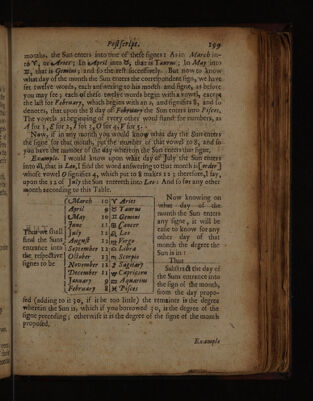 Postscript. 199
months, the Sun enters into one of these signes: As in March in-
to ♈, or Aries; In April into ♉, that is Taurus; In May into
♊, that is Gemini; and so the rest successively. But now to know
what day of the month the Sun enters the correspondent sign, we have
set twelve words, each answering to his month and signe, as before
you may see; each of these twelve words begin with a vowel, except
the last for February, which begins with an
denotes, that upon the 8 day of February the Sun enters into Pisces.
The vowels at beginning of every other word stand for numbers, as
A for 1, E for 2, I for 3, O for 4, V for 5.
Now, if in any month you would know what day the Sun enters
the signe for that month, put the number of that vowel to 8, and so
you have the number of the day wherein the Sun enters that signe,
Example. I would know upon what day of July the Sun enters
into ♌, that is Leo, I find the word answering to that month is [order]
whose vowel O signifies 4, which put to 8 makes 12; therefore, I say,
upon the 12 of July the Sun entereth into Leo: And so for any other
month according to this Table.
March 10 ♈ Aries
April 9 ♉ Taurus
May 10 ♊ Gemini
June 11 ♋ Cancer
July 12 ♌ Leo
August 12 ♍ Virgo
September 12 ♎ Libra
October 13 ♏ Scorpio
November 11 ♐ Sagitary
December 11 ♑ Capricorn
January 9 ♒ Aquarius
February 8 ♓ Pisces
Thus we shall
find the Suns
entrance into
the respective
signes to be
Now knowing on
what day of the
month the Sun enters
any signe, it will be
easie to know for any
other day of that
month the degree the
Sun is in:
Thus
Substract the day of
the Suns entrance into
the sign of the month,
from the day propo-
sed (adding to it 30, if it be too little) the remainer is the degree
wherein the Sun is, which if you borrowed 30, is the degree of the
signe preceding; otherwise it is the degree of the signe of the month
proposed.
Example